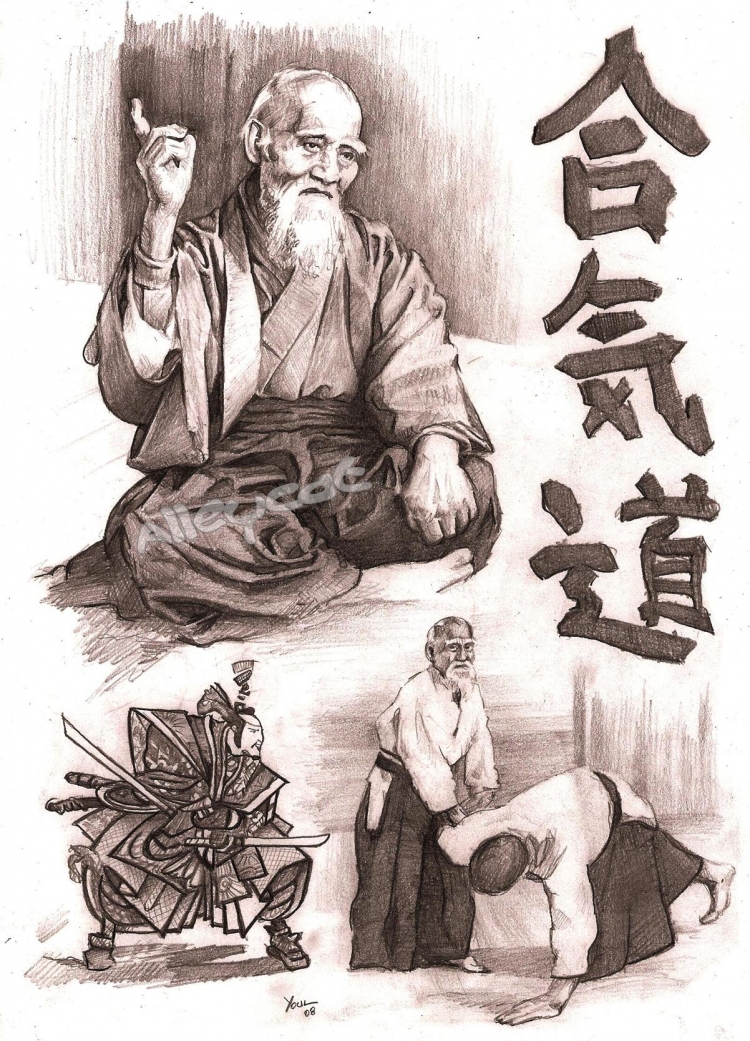 合
気
道
Alleycat
YOUL
08